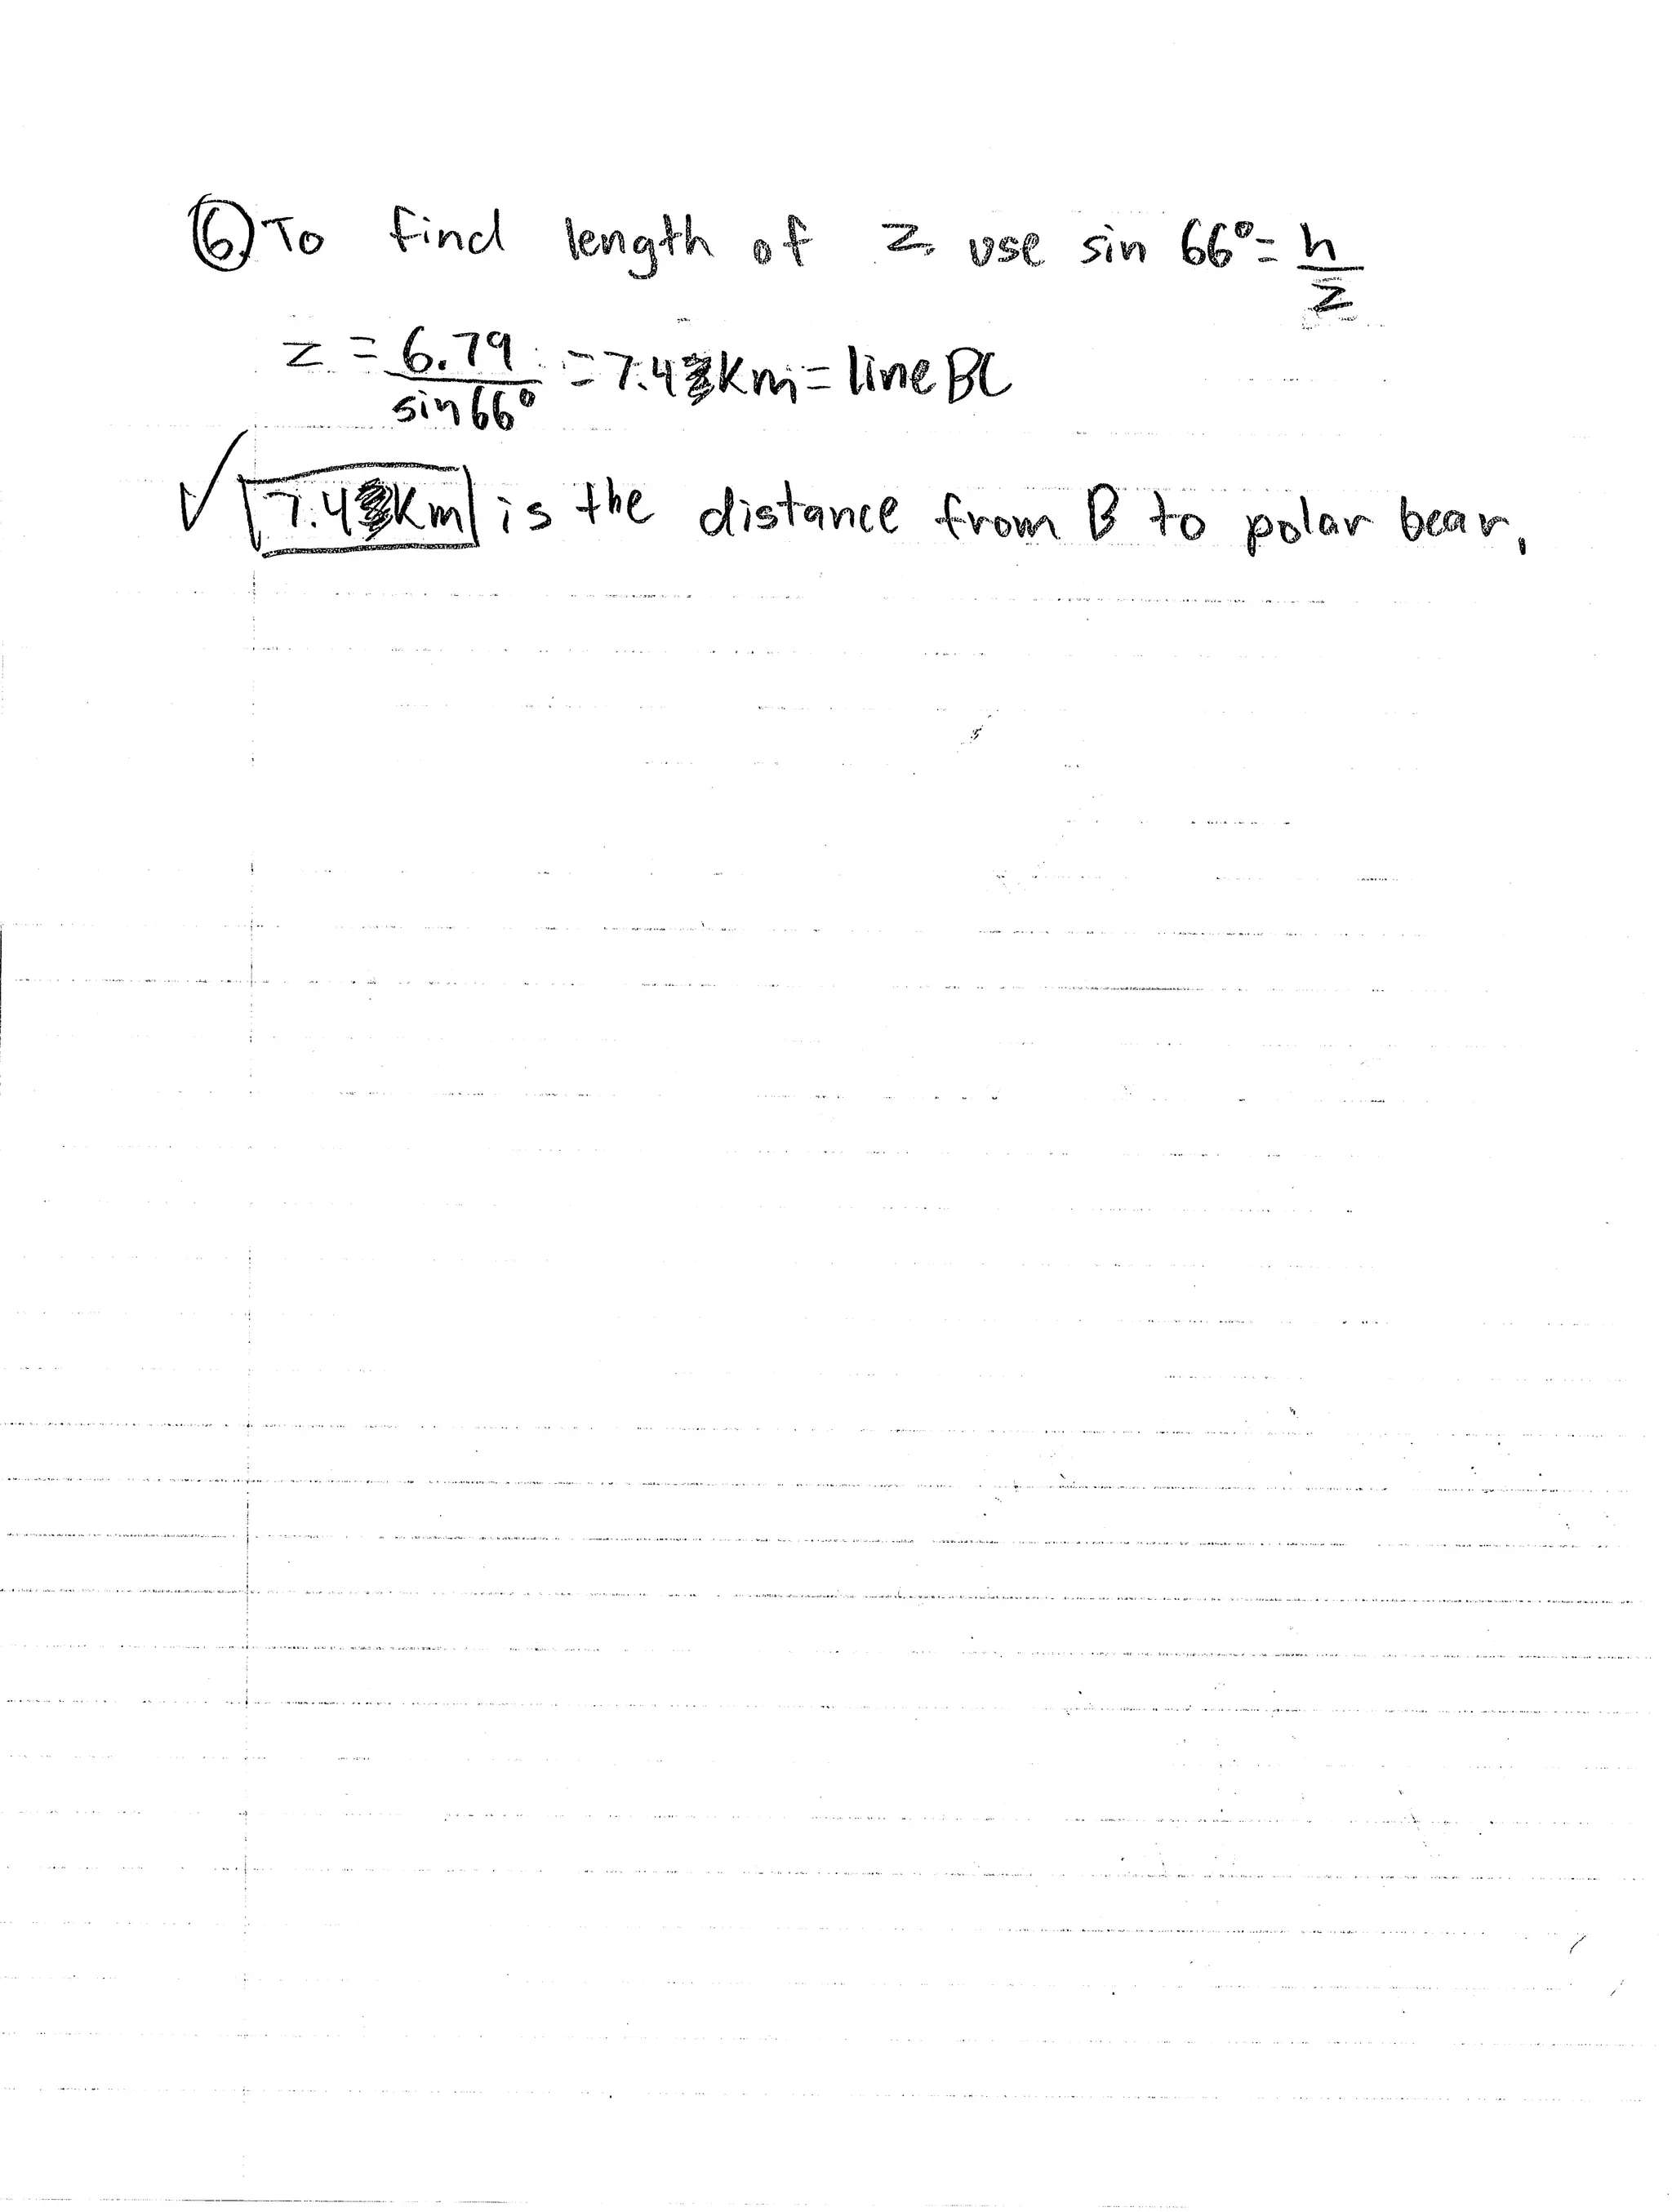 ⑥ To find length of z, use sin 66° = h/z
z = 6.79/sin 66° = 7.4 Km = line BC
√ 7.4 Km is the distance from B to polar bear.